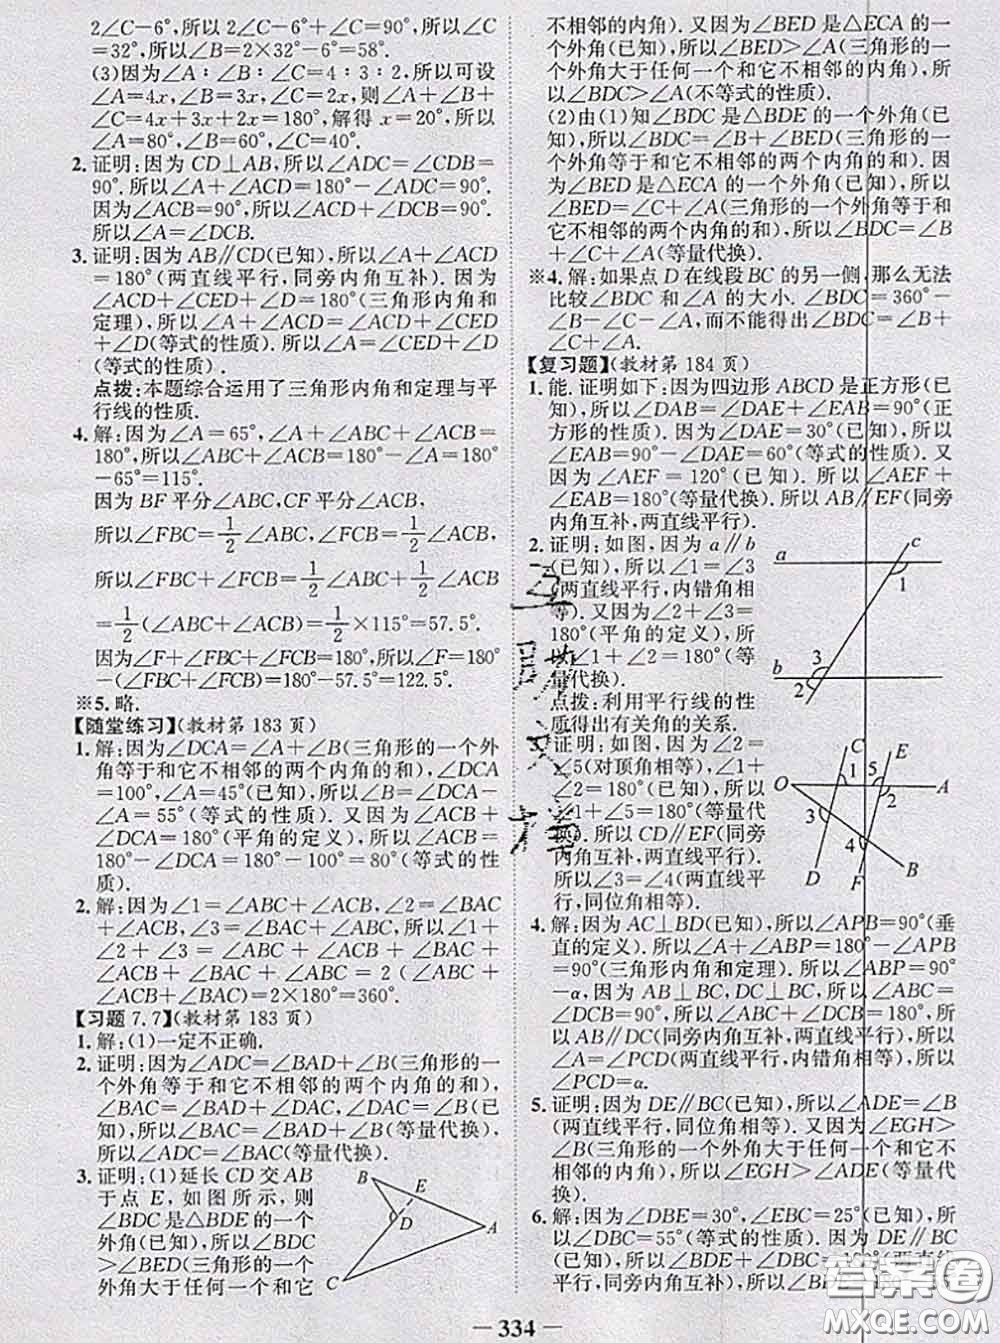 2∠C－6°，所以 2∠C－6°＋∠C＝90°，所以∠C＝
32°，所以∠B＝2×32°－6°＝58°.
(3)因为∠A∶∠B∶∠C＝4∶3∶2，所以可设
∠A＝4x，∠B＝3x，∠C＝2x，则∠A＋∠B＋
∠C＝4x＋3x＋2x＝180°，解得 x＝20°，所以
∠A＝80°，∠B＝60°，∠C＝40°.
2. 证明：因为 CD⊥AB，所以∠ADC＝∠CDB＝
90°.所以∠A＋∠ACD＝180°－∠ADC＝90°.
因为∠ACB＝90°，所以∠ACD＋∠DCB＝90°.
所以∠A＝∠DCB.
3. 证明：因为 AB∥CD(已知)，所以∠A＋∠ACD
＝180°(两直线平行，同旁内角互补). 因为
∠ACD＋∠CED＋∠D＝180°(三角形内角和
定理)，所以∠A＋∠ACD＝∠ACD＋∠CED
＋∠D(等式的性质). 所以∠A＝∠CED＋∠D
(等式的性质).
点拨：本题综合运用了三角形内角和定理与平
行线的性质.
4. 解：因为∠A＝65°，∠A＋∠ABC＋∠ACB＝
180°，所以∠ABC＋∠ACB＝180°－∠A＝180°
－65°＝115°.
因为 BF 平分∠ABC，CF 平分∠ACB，
所以∠FBC＝1/2∠ABC，∠FCB＝1/2∠ACB.
所以∠FBC＋∠FCB＝1/2∠ABC＋1/2∠ACB
＝1/2(∠ABC＋∠ACB)＝1/2×115°＝57.5°.
因为∠F＋∠FBC＋∠FCB＝180°，所以∠F＝
180°－(∠FBC＋∠FCB)＝180°－57.5°＝122.5°.
※5. 略.
【随堂练习】(教材第 183 页)
1. 解：因为∠DCA＝∠A＋∠ABC(三角形的一个外
角等于和它不相邻的两个内角的和)，∠DCA
＝100°，∠A＝45°(已知)，所以∠B＝∠DCA－
∠A＝55°(等式的性质). 又因为∠ACB＋
∠DCA＝180°(平角的定义)，所以∠ACB＝
180°－∠DCA＝180°－100°＝80°(等式的性
质).
2. 解：因为∠1＝∠ABC＋∠ACB，∠2＝∠BAC
＋∠ACB，∠3＝∠BAC＋∠ABC，所以∠1＋
∠2＋∠3＝∠ABC＋∠ACB＋∠BAC＋
∠ACB＋∠BAC＋∠ABC＝2(∠ABC＋
∠ACB＋∠BAC)＝2×180°＝360°.
【习题 7.7】(教材第 183 页)
1. 解：(1)一定不正确.
2. 证明：因为∠ADC＝∠BAD＋∠B(三角形的一
个外角等于和它不相邻的两个内角的和)，
∠BAC＝∠BAD＋∠DAC，∠DAC＝∠B(已
知)，所以∠ADC＝∠BAC(等量代换).
3. 证明：(1)延长 CD 交 AB
于点 E，如图所示，则
∠BDC 是△BDE 的一个
外角(已知)，所以∠BDC
＞∠BED(三角形的一个
外角大于任何一个和它
B
E
D
A
C
不相邻的内角). 又因为∠BED 是△ECA 的一个
外角(已知)，所以∠BED＞∠A(三角形的一个
外角大于任何一个和它不相邻的内角)，所
以∠BDC＞∠A(不等式的性质).
(2)由(1)知∠BDC 是△BDE 的一个外角(已
知)，所以∠BDC＝∠B＋∠BED(三角形的一个
外角等于和它不相邻的两个内角的和). 又
因为∠BED 是△ECA 的一个外角(已知)，所以
∠BED＝∠C＋∠A(三角形的一个外角等于和
它不相邻的两个内角的和). 所以∠BDC＝∠B
＋∠C＋∠A(等量代换).
※4. 解：如果点 D 在线段 BC 的另一侧，那么无法
比较∠BDC 和∠A 的大小. ∠BDC＝360°－
∠B－∠C－∠A，而不能得出∠BDC＝∠A＋
∠B＋∠C.
【复习题】(教材第 184 页)
1. 能. 证明如下：因为四边形 ABCD 是正方形(已
知)，所以∠DAB＝∠DAE＋∠EAB＝90°(正
方形的性质). 又因为∠DAE＝30°(已知)，所以
∠EAB＝90°－∠DAE＝60°(等式的性质). 又
因为∠AEF＝120°(已知)，所以∠AEF＋
∠EAB＝180°(等量代换). 所以 AB∥EF(同旁
内角互补，两直线平行).
2. 证明：如图，因为 a∥b
(已知)，所以∠1＝∠3
(两直线平行，内错角相
等). 又因为∠2＋∠3＝
180°(平角的定义)，所
以∠1＋∠2＝180°(等
量代换).
点拨：利用平行线的性
质得出有关角的关系.
a
c
1
b
3
2
证明：如图，因为∠2＝
∠5(对顶角相等)，∠1＋
∠2＝180°(已知)，所以
∠1＋∠5＝180°(等量代
换). 所以 CD∥EF(同旁
内角互补，两直线平行).
所以∠3＝∠4(两直线平行，
同位角相等).
C
E
1
5
O
A
2
3
4
D
F
B
4. 解：因为 AC⊥BD(已知)，所以∠APB＝90°(垂
直的定义). 所以∠A＋∠ABP＝180°－∠APB
＝90°(三角形内角和定理). 所以∠ABP＝90°
－α. 因为 AB⊥BC，DC⊥BC，所以∠ABC＝
∠DCB＝90°. 所以∠ABC＋∠DCB＝180°. 所
以 AB∥DC(同旁内角互补，两直线平行). 所以
∠A＝∠PCD(两直线平行，内错角相等). 所以
∠PCD＝α.
5. 证明：因为 DE∥BC(已知)，所以∠ADE＝∠B
(两直线平行，同位角相等). 又因为∠EGH＞
∠B(三角形的一个外角大于任何一个和它不相
邻的内角)，所以∠EGH＞∠ADE(等量代换).
6. 解：因为∠DBE＝30°，∠EBC＝25°(已知)，所以
∠DBC＝55°(等式的性质). 因为 DE∥BC(已
知)，所以∠BDE＋∠DBC＝180°(两直线平行，
同旁内角互补)，所以∠BDE＝
— 334 —
答案圈
MXQE.COM